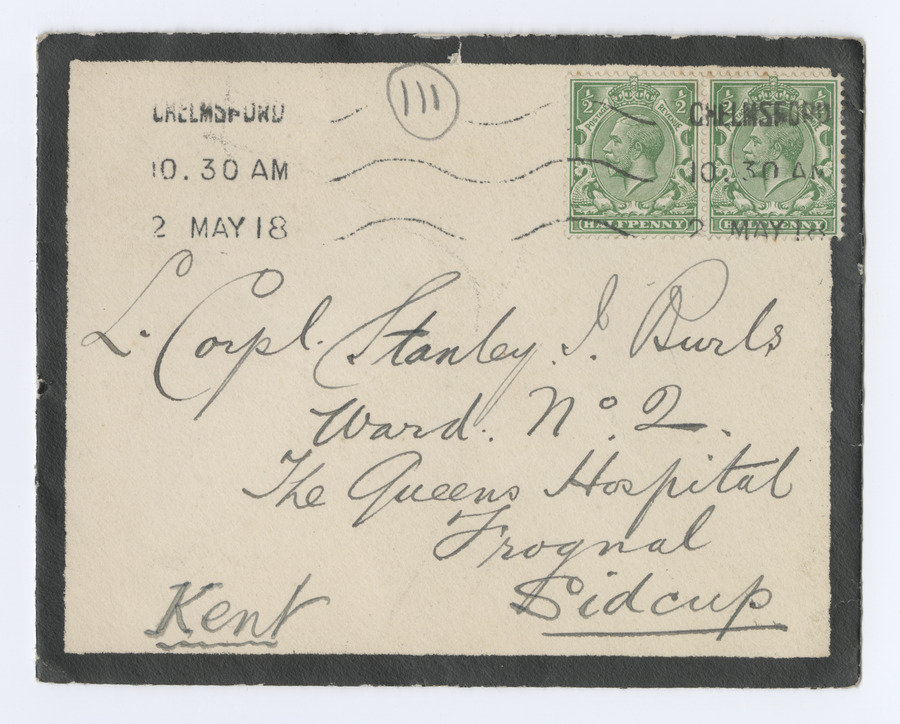 CHELMSFORD
10.30 AM
2 MAY 18
111
½ ½
POSTAGE REVENUE
HALFPENNY
½ ½
HALFPENNY
CHELMSFORD
10.30 AM
2 MAY 18
L. Corpl. Stanley. J. Burls
Ward. No. 2.
The Queens Hospital
Frognal
Sidcup
Kent